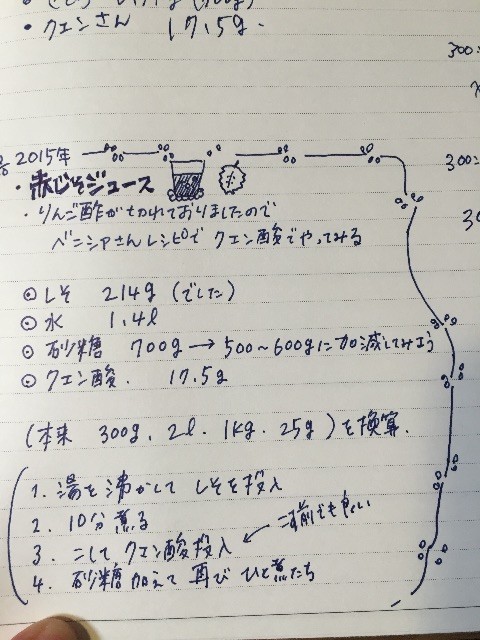 ・クエンさん 17.5g.
300
2015年
300
・赤じそジュース
・りんご酢が切れておりましたので
ベニシアさんレシピで クエン酸でやってみる
◎しそ 214g (でした)
◎水 1.4l
◎砂糖 700g → 500～600gに加減してみよう
◎クエン酸. 17.5g
(本来 300g. 2l. 1kg. 25g) を換算.
1. 湯を沸かして しそを投入
2. 10分煮る
3. こして クエン酸投入 ← こす前でも良い
4. 砂糖加えて 再び ひと煮たち